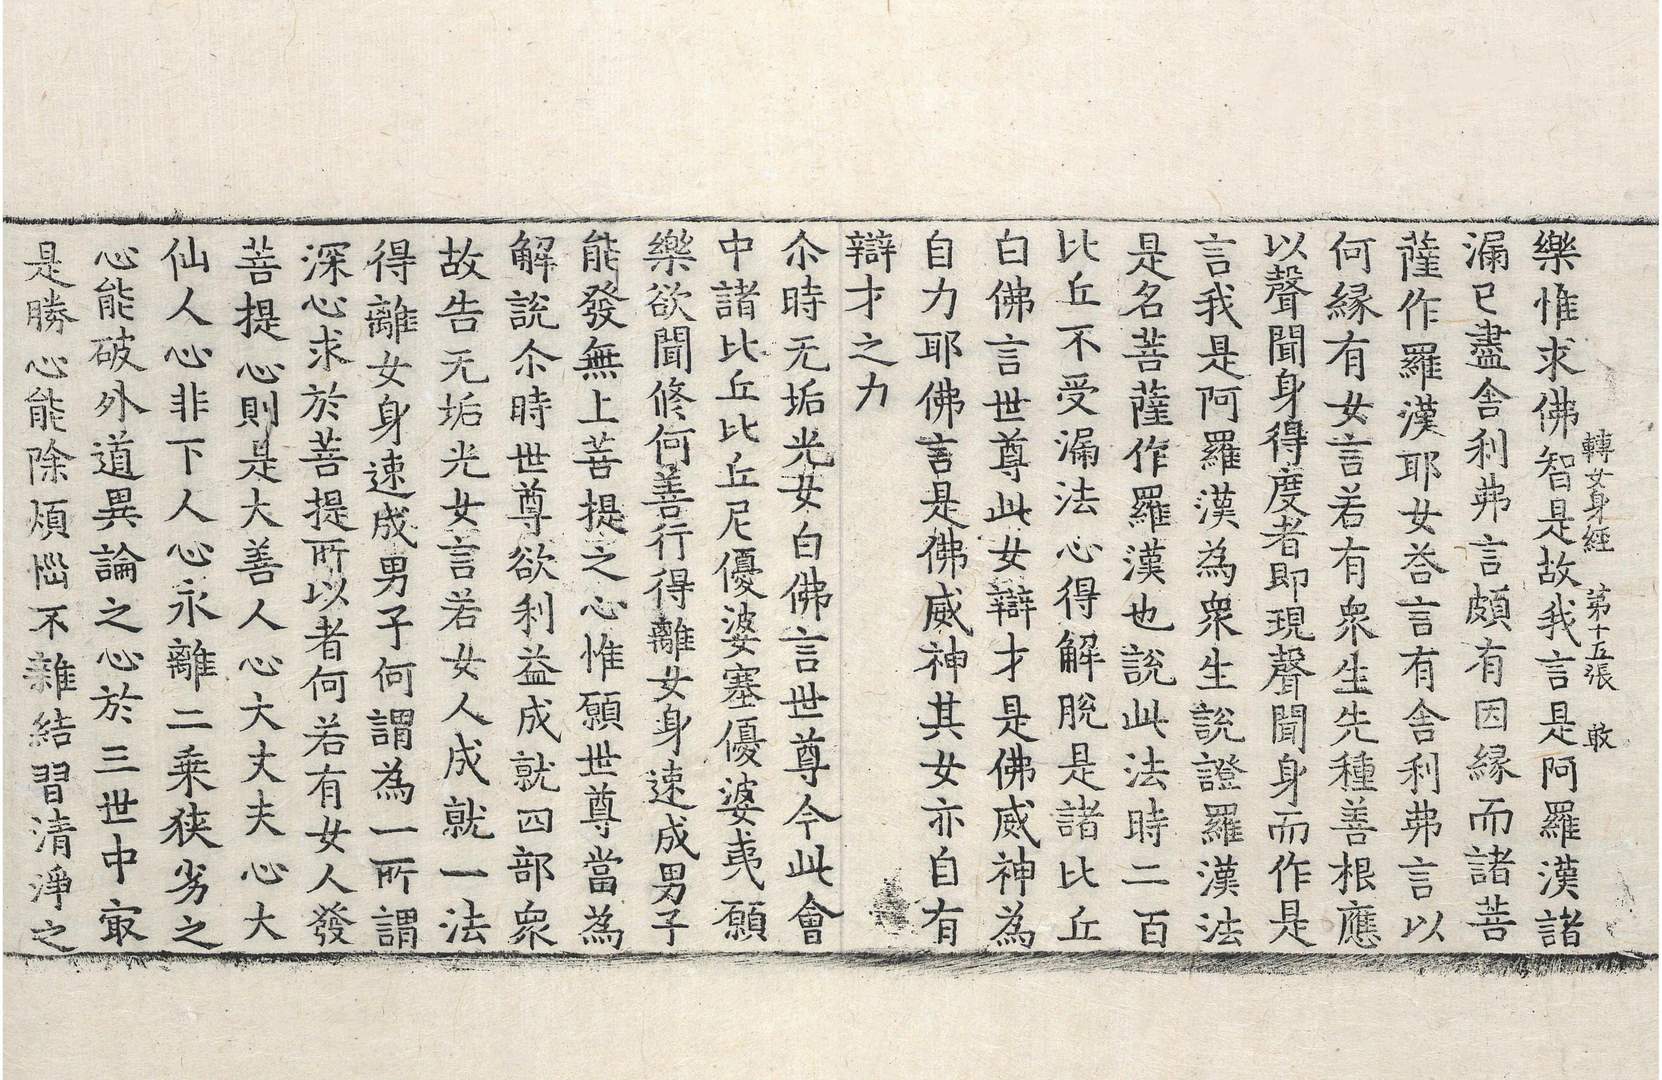 轉女身經 第十五張 敢
樂惟求佛智是故我言是阿羅漢諸
漏已盡舍利弗言頗有因縁而諸菩
薩作羅漢耶女荅言有舍利弗言以
何縁有女言若有衆生先種善根應
以聲聞身得度者即現聲聞身而作是
言我是阿羅漢為衆生說證羅漢法
是名菩薩作羅漢也說此法時二百
比丘不受漏法心得解脫是諸比丘
白佛言世尊此女辯才是佛威神為
自力耶佛言是佛威神其女亦自有
辯才之力
尒時无垢光女白佛言世尊今此會
中諸比丘比丘尼優婆塞優婆夷願
樂欲聞修何善行得離女身速成男子
能發無上菩提之心惟願世尊當為
解說尒時世尊欲利益成就四部衆
故告无垢光女言若女人成就一法
得離女身速成男子何謂為一所謂
深心求於菩提所以者何若有女人發
菩提心則是大善人心大丈夫心大
仙人心非下人心永離二乗狹劣之
心能破外道異論之心於三世中冣
是勝心能除煩惱不雜結習清淨之